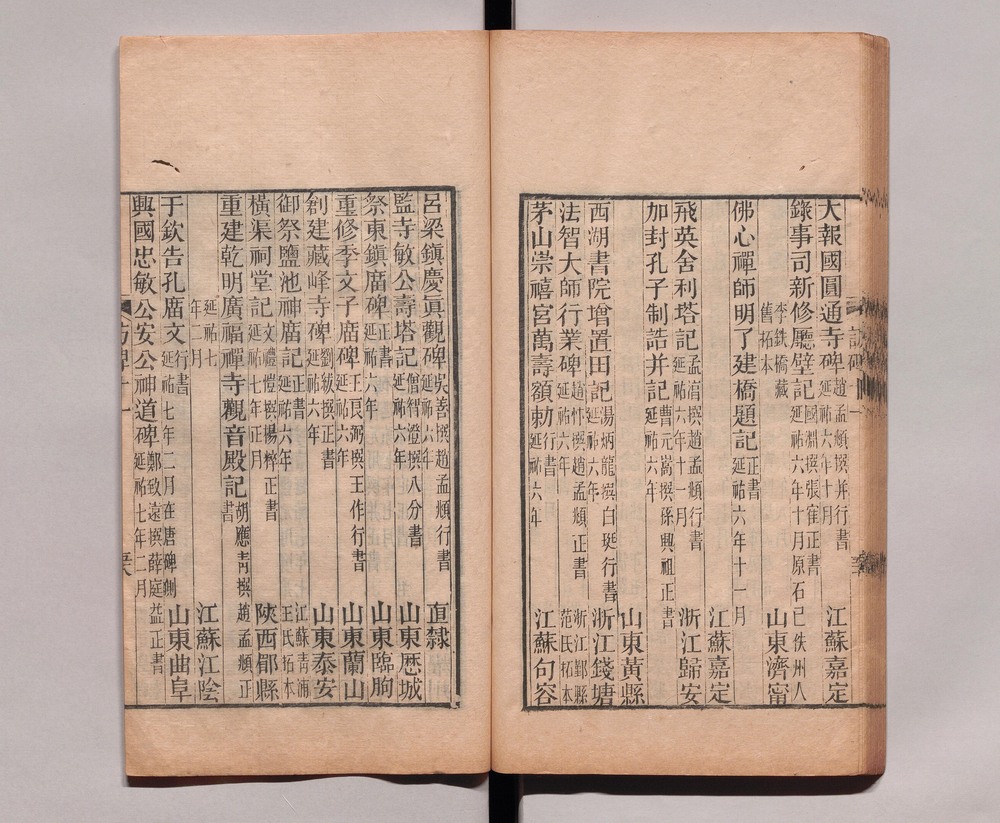 大報國圓通寺碑 趙孟頫撰并行書 延祐六年十月 江蘇嘉定
錄事司新修廳壁記 國淵撰張寉正書 延祐六年十月原石已佚州人
李鉄橋藏舊拓本 山東濟甯
佛心禪師明了建橋題記 正書 延祐六年十一月
江蘇嘉定
飛英舍利塔記 孟淯撰趙孟頫行書 延祐六年十一月 浙江歸安
加封孔子制誥并記 曹元嵩撰孫興祖正書 延祐六年
山東黃縣
西湖書院增置田記 湯炳龍撰白珽行書 延祐六年 浙江錢塘
法智大師行業碑 趙忭撰趙孟頫正書 延祐六年 浙江鄞縣范氏拓本
茅山崇禧宮萬壽額勅 行書 延祐六年 江蘇句容
呂梁鎮慶眞觀碑 吳善撰趙孟頫行書 延祐六年 直隸
監寺敏公壽塔記 信智澄撰八分書 延祐六年 山東歷城
祭東鎮廟碑 正書 延祐六年 山東臨朐
重修季文子廟碑 王艮弼撰王作行書 延祐六年 山東蘭山
創建藏峰寺碑 劉紱撰正書 延祐六年 山東泰安
御祭鹽池神廟記 正書 延祐六年 江蘇青浦王氏拓本
橫渠祠堂記 文禮愷撰揚粹正書 延祐七年正月 陝西郿縣
重建乾明廣福禪寺觀音殿記 胡應靑撰趙孟頫正書
延祐七年二月 江蘇江陰
于欽告孔廟文 行書 延祐七年二月在唐碑側 山東曲阜
興國忠敏公安公神道碑 鄭致遠撰薛庭益正書 延祐七年二月